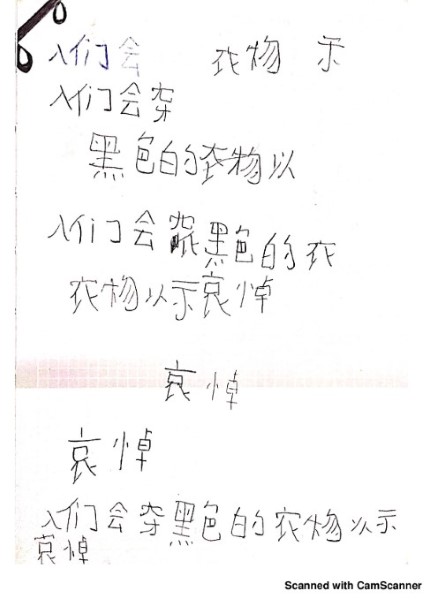 人们会 衣物 示
人们会穿
黑色的衣物以
人们会穿黑色的衣
衣物以示哀悼
哀悼
哀悼
人们会穿黑色的衣物以示
哀悼
Scanned with CamScanner